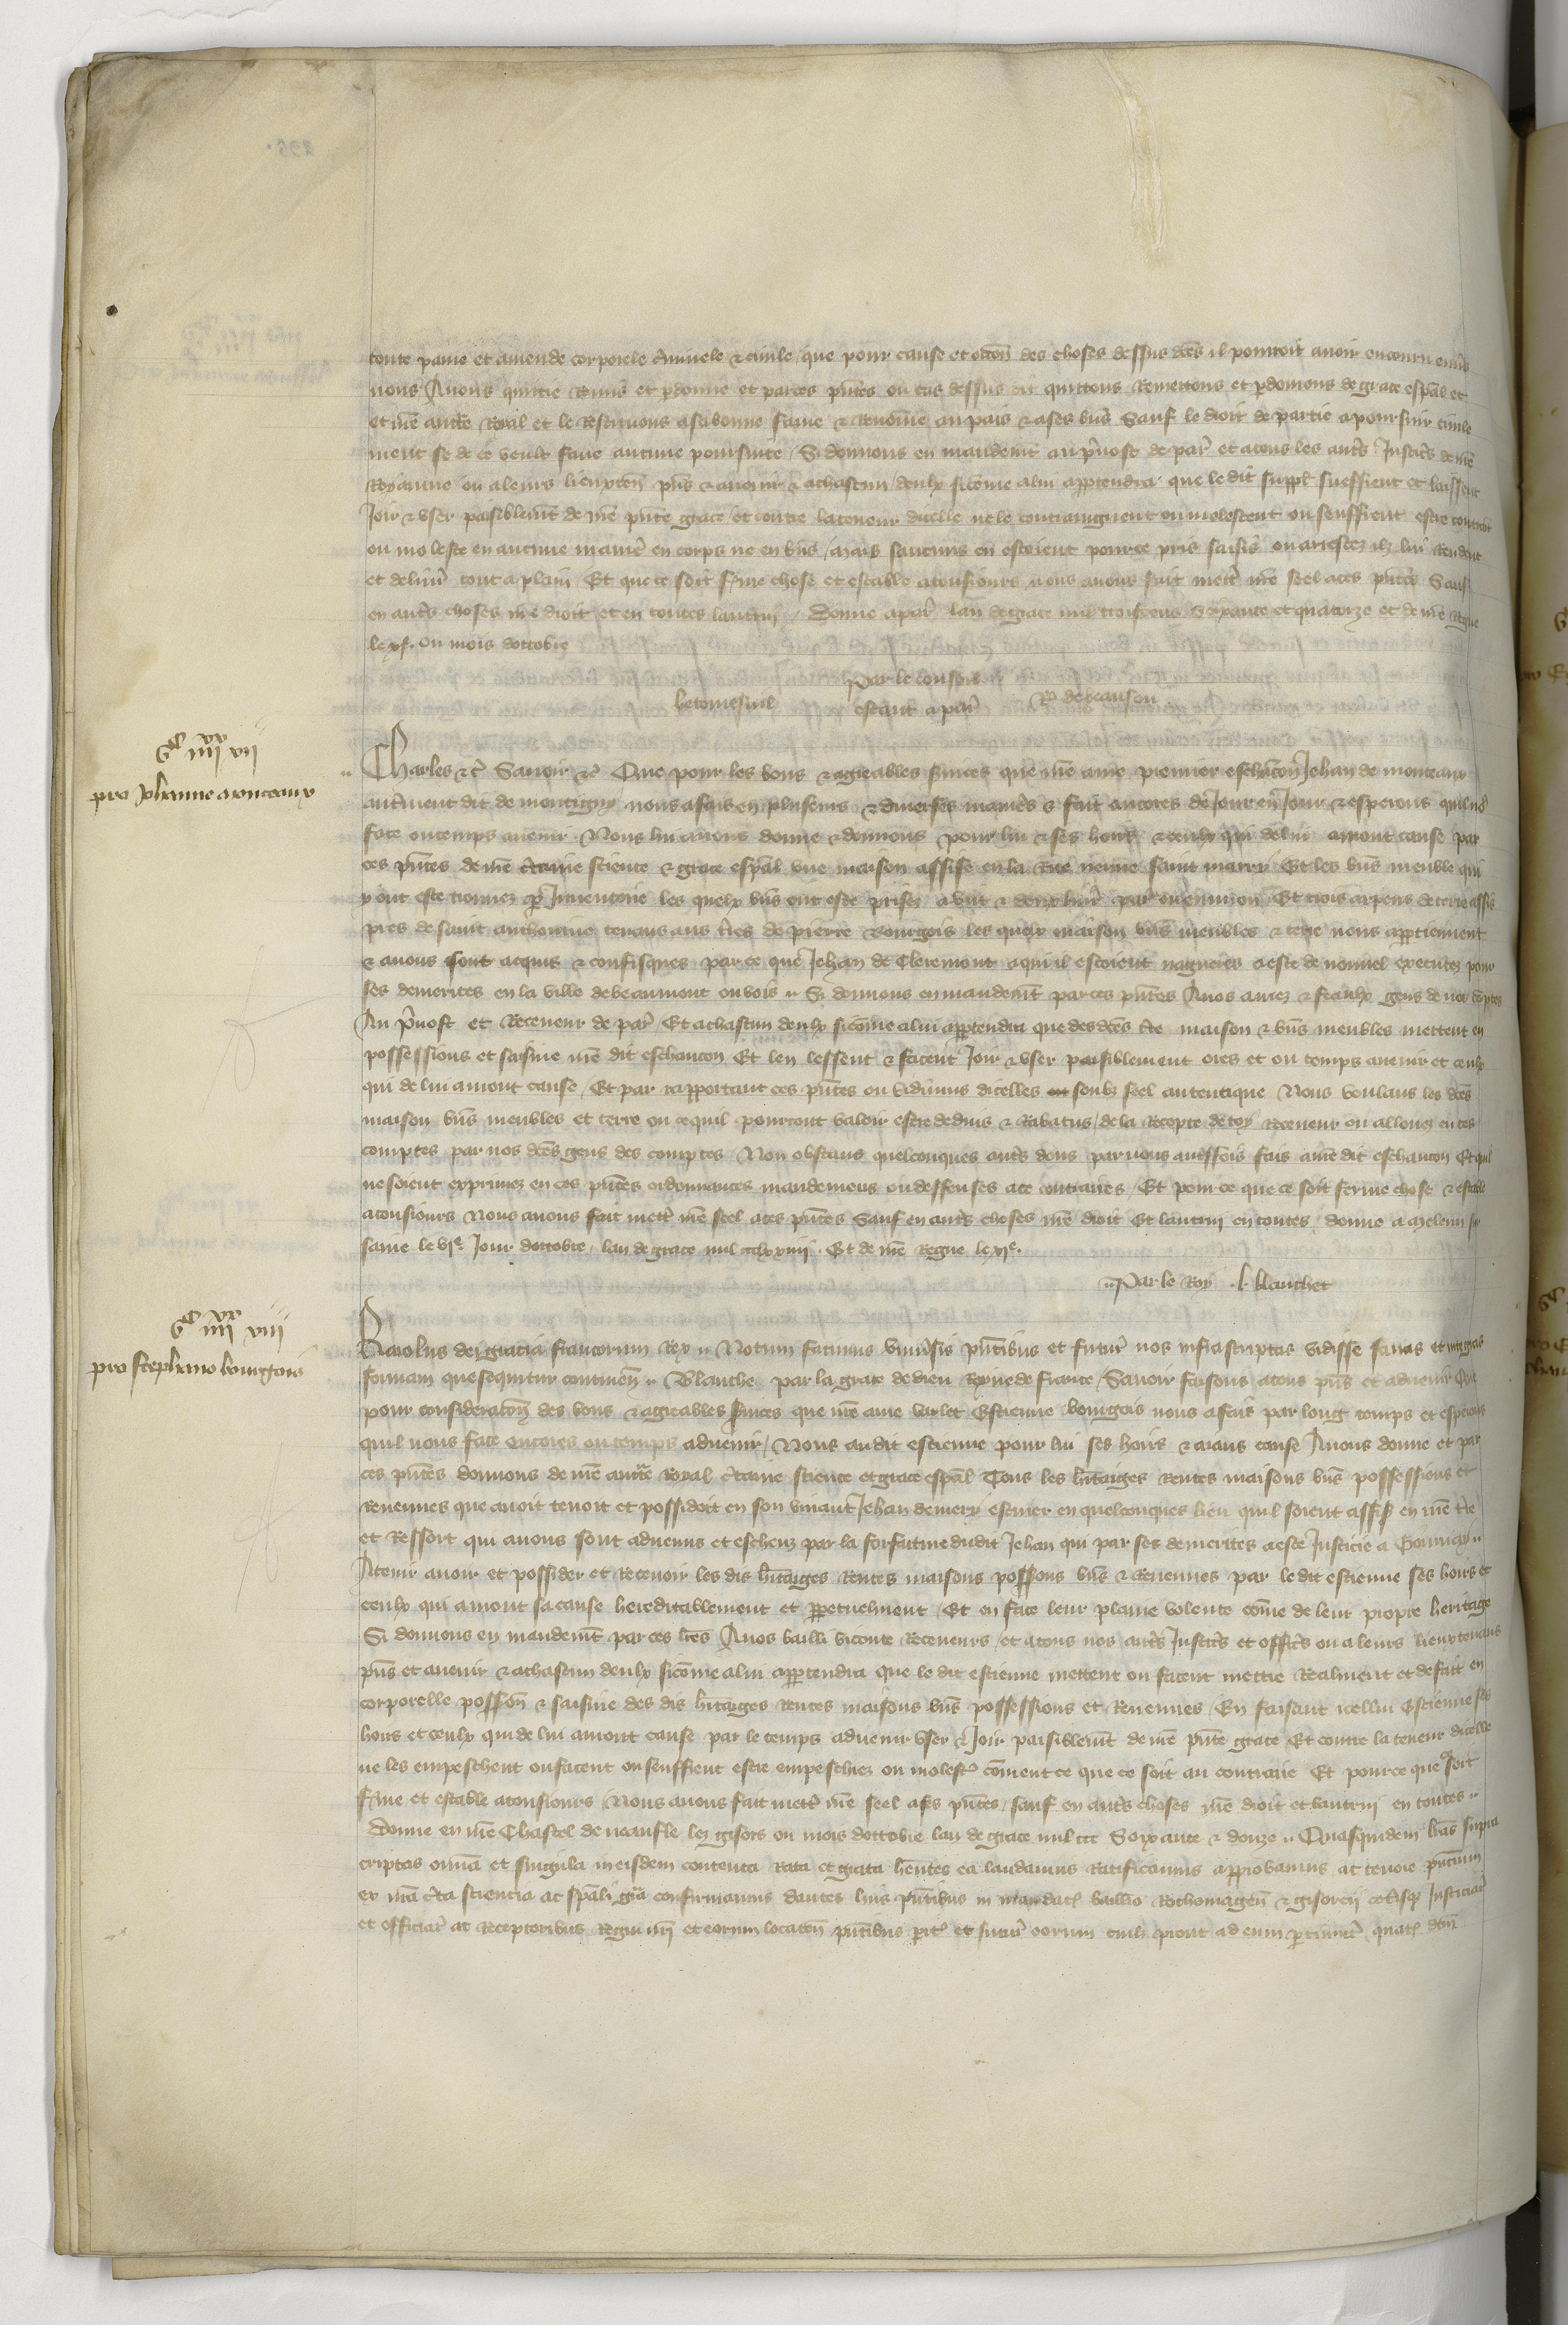 toute paine et amende corporele criminele & civile que pour cause et occōn des choses dessus dc̄es il pourroit avoir encouru envs̄
nous Avons quittie Remis et pdonne et par ces pn̄tes ou cas dessus dit quittons Remettons et pdonnons de grace esp̄al et
et nr̄e auctte Royal et le Restituons a sa bonne fame & Renom̄ee au pais & a ses bn̄s Sauf le droit de partie a poursuir civile
ment se de ce veult faire aucune poursuite / Si donnons en mandemt au pvost de par̄ et a tous les autr̄s Justic̄rs de nr̄e
Royaume ou a leurs lieuxten̄ pn̄s & avenir & a chascun deulx sicom̄e a lui appartendra que le dit suppl̄ sueffrent et laissent
Joir & user paisiblemt de nr̄e pn̄te grace et contre la teneur dicelle ne le contraingnent ou molestent ou seuffrent estre contraint
ou moleste en aucune manie͛ en corps ne en bn̄s / mais saucuns en estoient pour ce pris saisis ou arrestez ilz lui Rendent
et delivr͛ tout a plain Et que ce soit fme chose et estable a tousjours nous avons fait mett͛ nr̄e seel a ces pn̄tes Sauf
en autr̄s choses nr̄e droit et en toutes lautrui / Donne a par̄ lan de grace mil trois cens Soixante et quatorze et de nr̄e Regne
le xje. ou mois doctobre
Par le conseil
estant a par̄ R de beaufou
Gc iiiixx vii
pro Johanne monceaux
Charles &c̄ Savoir &c̄ Que pour les bons & agreables svices que nr̄e ame premier eschancon Jehan de monceaux
autrement dit de montigny nous a fais en pluseurs & diverses manie͛s & fait encores de Jour en Jour & esperons quil no9
face ou temps avenir Nous lui avons donne & donnons pour lui & ses hoirs & ceulx qui de lui auront cause par
ces pn̄tes de nr̄e ctaine science & grace esp̄al une maison assise en la Rue neuve saint marry Et les bn̄s meuble qui
y ont este trouvez p Inventoire les quelx bn̄s ont este prisez a vint & deux livr͛ par̄ ou environ Et trois arpens de terre assis
pres de saint anthoinne tenans aus tr̄es de pierre Bourgois les quelx maison bn̄s meubles & terre nous appartiennent
& a nous sont acquis & confisques par ce que Jehan de Cleremont a qui il estoient nagueres a este de nouvel executez pour
ses demerites en la ville de beaumont ou bois Si donnons en mandemt par ces pn̄tes A nos amez & feaulx gens de noz cōptes
Au pvost et Receveur de par̄ Et a chascun deulx sicōme a lui appartendra que des dc̄es tr̄e maison & bn̄s meubles mettent en
possessions et saisine nr̄e dit eschancon Et len lessent & facent Joir & user paisiblement ores et ou temps avenir et ceulx
qui de lui auront cause / Et par rapportant ces pn̄tes ou vidimus dicelles soubz seel autentique Nous voulans les dc̄es
maison bn̄s meubles et terre ou ce quil pourront valoir estre deduis & Rabatus de la Recepte de toy Receveur ou allouez en tes
comptes par nos dc̄es gens des comptes Non obstans quelconques autr̄s dons par nous autressois fais a nr̄e dit eschancon Et quil
ne soient exprimez en ces pn̄tes ordonnances mandemens ou deffenses a ce contraires / Et pour ce que ce soit ferme chose & estable
a tousjours Nous avons fait mett͛ nr̄e seel a ces pn̄tes Sauf en autr̄s choses nr̄e droit Et lautrui en toutes / donne a meleun sr
saine le vje Jour doctobre / lan de grace mil ccclxxiiii. Et de nr̄e Regne le xje.
Par le Roy L. blanchet
Gc iiiixx viii
pro Stephano bourgois
Karolus dei gracia francorum Rex Notum facimus univsis pn̄tibus et futur̄ nos infrascriptas vidisse sanas et integras
formam que sequitur continen̄ Blanche par la grace de dieu Royne de france / Savoir faisons a tous pn̄s et advenir Que
pour consideracōn des bons & agreables svices que nr̄e ame varlet Estienne bourgois nous a fais par long temps et esperons
quil nous face encores ou temps advenir / Nous au dit estienne pour lui ses hoirs & aians cause Avons donne et par
ces pn̄tes donnons de nr̄e auctte Royal ctaine science et grace esp̄al Tous les hritaiges Rentes maisons bn̄s possessions et
Revenues que avoit tenoit et possidoit en son vivant Jehan de mery escuier en quelconques lieu quil soient assis en nr̄e tr̄e
et Ressort qui a nous sont advenus et escheuz par la forfaiture dudit Jehan qui par ses demerites a este Justicie a Gournay
A tenir avoir et possider et Recevoir les dis hritaiges Rentes maisons possons bn̄s & Revenues par le dit estienne ses hoirs et
ceulx qui auront sa cause hereditablement et ppetuelment / Et en face leur plaine volente com̄e de leur propre heritage
Si donnons en mandemt par ces lr̄es A nos bailli viconte Receveurs / et a tous nos autr̄s Justic̄rs et offic̄rs ou a leurs lieuxtenans
pn̄s et avenir & a chascun deulx sicōme a lui appartendra que le dit estienne mettent ou facent mettre Realment et de fait en
corporelle possōn & saisine des dis hritaiges rentes maisons bn̄s possessions et Revenues / En faisant icellui Estienne ses
hoirs et ceulx qui de lui auront cause par le temps advenir user & Joir paisiblemt de nr̄e pn̄te grace Et contre la teneur dicelle
ne les empeschent ou facent ou seuffrent estre empeschiez ou molest͛ cōment ce que ce soit au contraire Et pour ce que ce soit
fme et estable a tousjours Nous avons fait mett͛ nr̄e seel a ces pn̄tes / sauf en autr̄s choses nr̄e droit et lautrui en toutes
Donne en nr̄e Chastel de neaufle lez gisors ou mois doctobre lan de grace mil ccc Soixante & douze Quasquidem lr̄as supra
scriptas omīa et singula in eisdem contenta Rata et grata hentes ea laudamus Ratificamus approbamus ac tenore pn̄cium
ex nr̄a cta sciencia ac sp̄ali gr̄a confirmamus dantes hiis pn̄tibus in mandat͛ baillivo Rothomagen̄ & gisorcii cetisq͛ Justiciar̄
et officiar̄ ac Receptoribus Regni nr̄i et eorum locaten̄ pn̄tibus pit͛ et futur̄ eorum cuil͛ prout ad eum ptinuit͛ quat͛ dc̄m